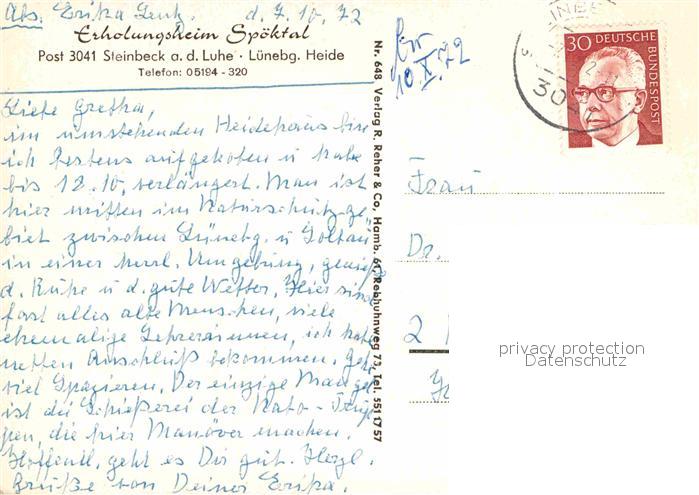 Abs. Erika Lentz. d. 7.10.72
Erholungsheim Spöktal
Post 3041 Steinbeck a. d. Luhe · Lünebg. Heide
Telefon: 05194 - 320
Liebe Gretha,
im umstehenden Heidehaus bin
ich bestens aufgehoben u habe
bis 12.10. verlängert. Man ist
hier mitten im Naturschutzge-
biet zwischen Lünebg. u Soltau
in einer herrl. Umgebung, genieße
d. Ruhe u d. gute Wetter. Hier sind
fast alles alte Menschen, viele
ehemalige Lehrerinnen, ich habe
netten Anschluß bekommen. Geh
viel Spazieren. Der einzige Mangel
ist die Schießerei der Nato-Trup-
pen, die hier Manöver machen.
Hoffentl. geht es Dir gut. Herzl.
Grüße von Deiner Erika.
Nr. 648 Verlag R. Reher & Co, Hamb. 61, Rebhuhnweg 73, Tel. 5511757
10.X.72
30 DEUTSCHE
BUNDESPOST
304
Frau
Dr.
2
privacy protection
Datenschutz